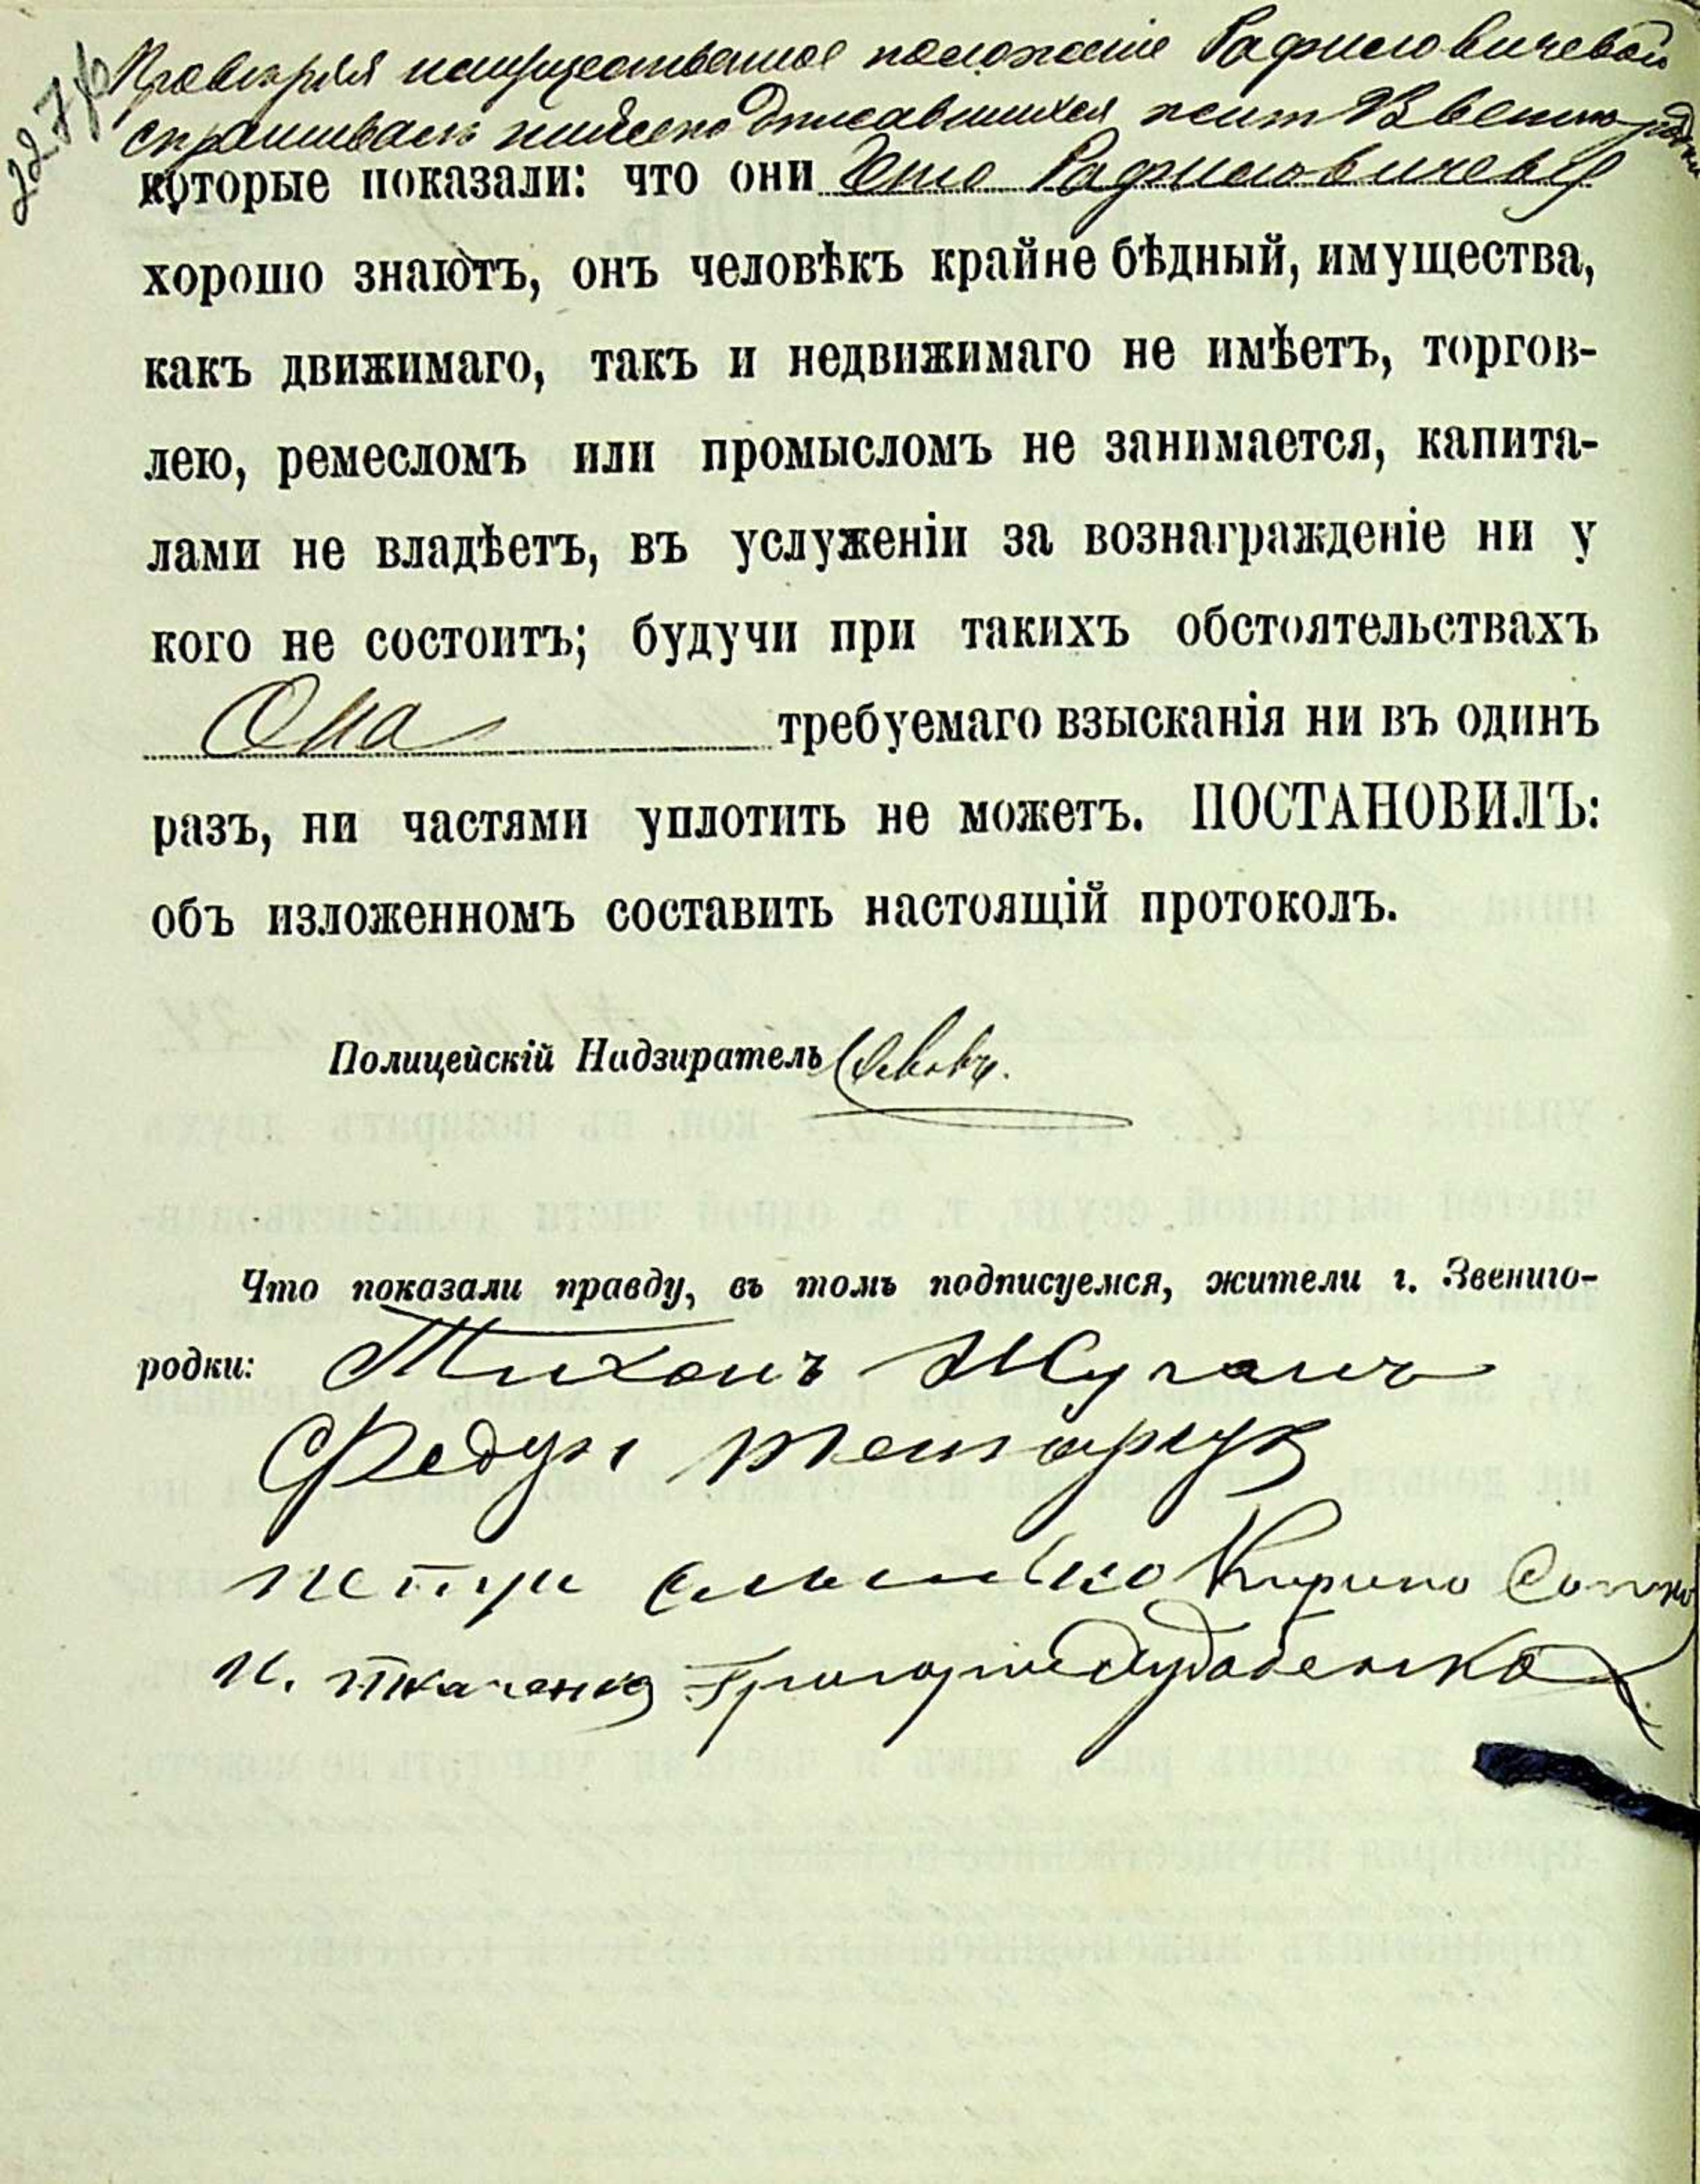 Провѣряя имущественное положеніе Рафиловичевой
спрашивалъ нижеподписавшихся жит. Звениго родки
которые показали: что они Рафиловичеву
хорошо знаютъ, онъ человѣкъ крайне бѣдный, имущества,
какъ движимаго, такъ и недвижимаго не имѣетъ, торгов-
лею, ремесломъ или промысломъ не занимается, капита-
лами не владѣетъ, въ услуженіи за вознагражденіе ни у
кого не состоитъ; будучи при такихъ обстоятельствахъ
Она требуемаго взысканія ни въ одинъ
разъ, ни частями уплотить не можетъ. ПОСТАНОВИЛЪ:
объ изложенномъ составить настоящій протоколъ.
Полицейскій Надзиратель
Что показали правду, въ томъ подписуемся, жители г. Звениго-
родки: Тихонъ
Федур
петри Кирило
И. Ткаченко Григорие